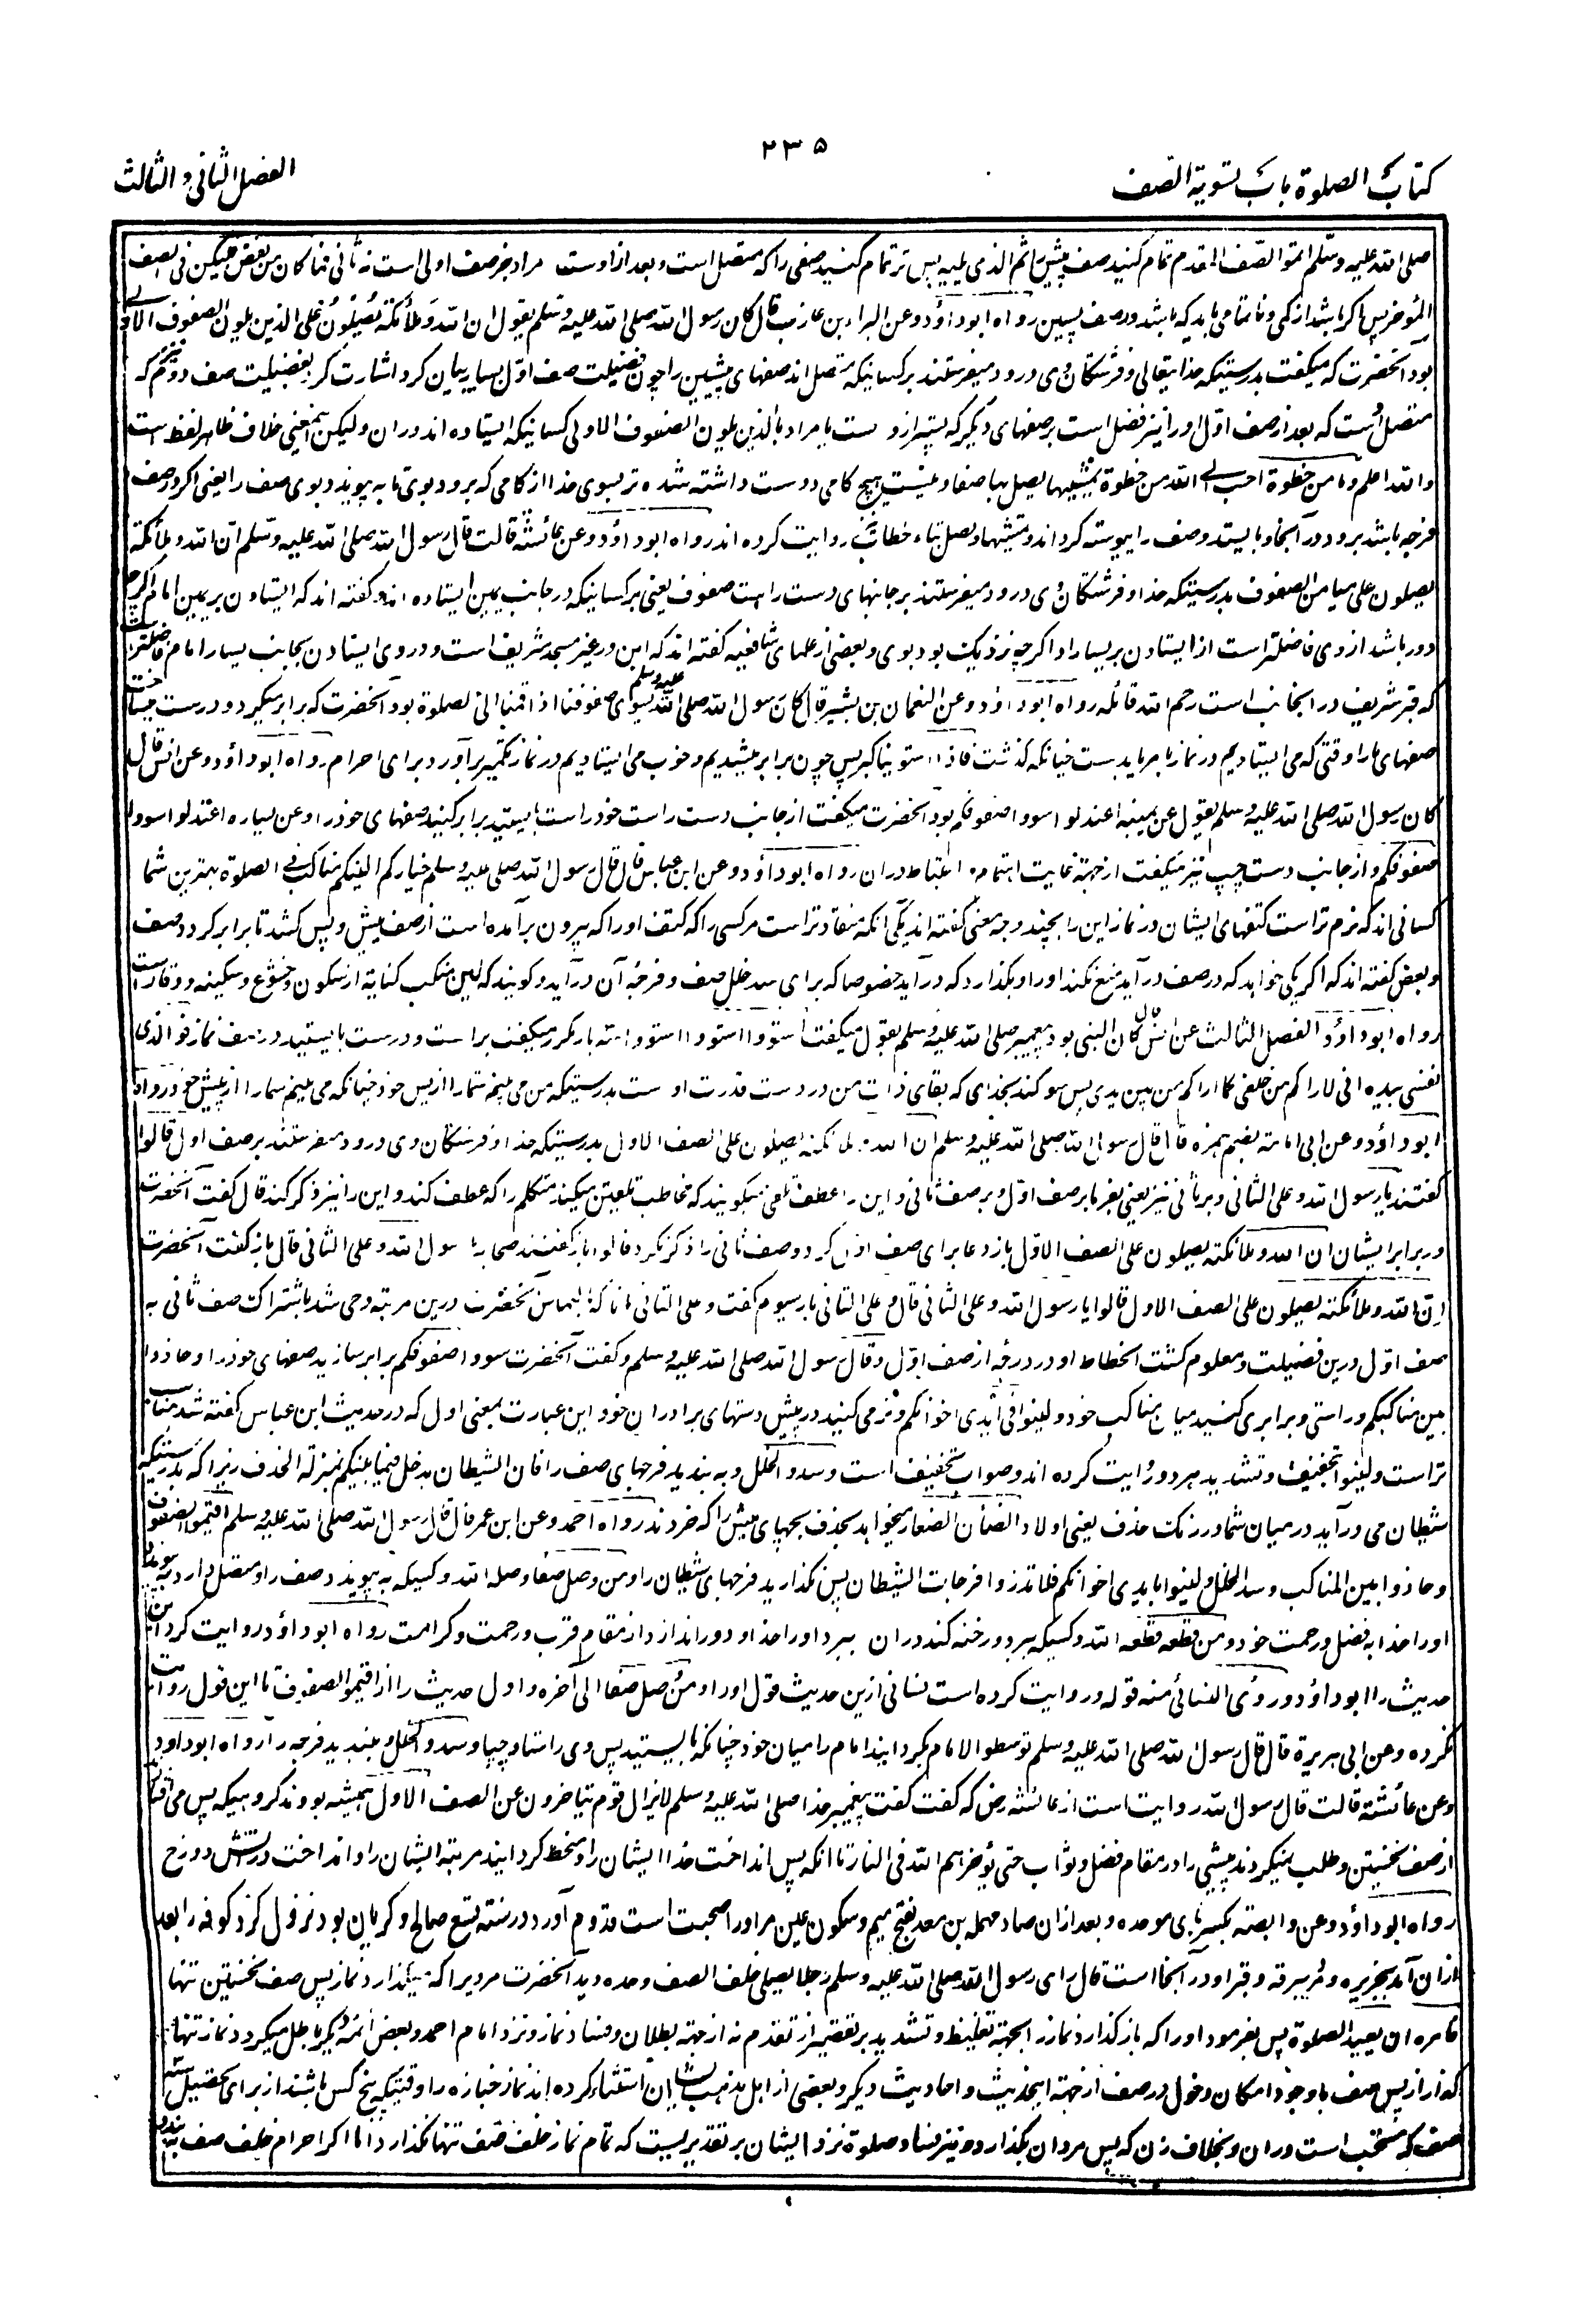 ۲۳۵
کتاب الصلوة باب تسویة الصف
الفصل الثانی و الثالث
صلی الله علیه وسلم اتموا الصف المقدم تمام کنید صف پیشین را ثم الذی یلیه پس تر تمام کنید صفی را که متصل است و بعد از اوست مراد جز صف اولی است نه ثانی فما کان من نقص فلیکن فی الصف
المؤخر پس اگر باشد از کمی و ناتمامی باید که باشد در صف پسین رواه ابو داؤد و عن البراء بن عازب قال کان رسول الله صلی الله علیه وسلم یقول ان الله و ملائکته یصلون علی الذین یلون الصفوف الاولی
بود آنحضرت که میگفت بدرستیکه خدایتعالی و فرشتگان وی درود میفرستند بر کسانیکه متصل اند صفهای پیشین را چون فضیلت صف اول بسیار بیان کرد اشارت کرد بفضیلت صف دوم که
متصل است که بعد از صف اول او را نیز فضل است بر صفهای دیگر که پستر از و ست یا مراد بالذین یلون الصفوف الاولی کسانیکه ایستاده اند در ان ولیکن این معنی خلاف ظاهر لفظ است
والله اعلم و ما من خطوة احب الی الله من خطوة یمشیها یصل بها صفا و نیست هیچ کامی دوست داشته شده تر بسوی خدا از کامی که برود بوی تا به پیوندد بوی صف را یعنی اگر در صف
فرجه باشد برود در آنجا و بایستد و صف را پیوسته گرداند و تمشیها و تصل بتاء خطاب نیز روایت کرده اند رواه ابو داؤد و عن عائشة قالت قال رسول الله صلی الله علیه وسلم ان الله و ملائکته
یصلون علی میامن الصفوف بدرستیکه خدا و فرشتگان وی درود میفرستند بر جانبهای دست راست صفوف یعنی بر کسانیکه در جانب یمین ایستاده اند و گفته اند که ایستادن بر یمین امام اگرچه
دور باشد از وی فاضلتر است از ایستادن بر یسار او اگرچه نزدیک بود بوی و بعضی از علمای شافعیه گفته اند که این در غیر مسجد شریف است و در وی ایستادن بجانب یسار امام فاضلتر است
که قبر شریف در آنجانب است رحم الله قائله رواه ابو داؤد و عن النعمان بن بشیر قال کان رسول الله صلی الله علیه وسلم یسوی صفوفنا اذا قمنا الی الصلوة بود آنحضرت که برابر میکرد و درست میساخت
صفهای ما را وقتی که می ایستادیم در نماز فاذا استوینا کبر پس چون برابر میشدیم و خوب می ایستادیم در نماز تکبیر بر آورد برای احرام رواه ابو داؤد و عن انس قال
کان رسول الله صلی الله علیه وسلم یقول عن یمینه اعتدلوا سووا صفوفکم بود آنحضرت میگفت از جانب دست راست خود راست بایستید برابر کنید صفهای خود را و عن یساره اعتدلوا سووا
صفوفکم و از جانب دست چپ نیز میگفت از جهة غایت اهتمام و احتیاط در ان رواه ابو داؤد و عن ابن عباس قال قال رسول الله صلی الله علیه وسلم خیارکم الینکم مناکب فی الصلوة بهترین شما
کسانی اند که نرم تر است کتفهای ایشان در نماز این را بچند وجه معنی گفته اند یکی آنکه منقاد تر است مر کسی را که کتف او را که بیرون برآمده است از صف پیش و پس کشد تا برابر گردد صف
و بعضی گفته اند که اگر یکی خواهد که در صف درآید منع نکند او را و بگذارد که درآید خصوصا که برای سد خلل صف و فرجه آن درآید و گویند که لین منکب کنایة از سکون و خشوع و سکینه و وقار است
رواه ابو داؤد الفصل الثالث عن انس قال کان النبی بود پیغمبر صلی الله علیه وسلم یقول میگفت استووا استووا استووا سه بار مکرر میگفت براست و درست بایستید در صف نماز فوالذی
نفسی بیده انی لاراکم من خلفی کما اراکم من بین یدی پس سوگند بخدای که بقای ذات من در دست قدرت اوست بدرستیکه من می بینم شما را از پس خود چنانکه می بینم شما را از پیش خود رواه
ابو داؤد و عن ابی امامة بضم همزه قال قال رسول الله صلی الله علیه وسلم ان الله و ملائکته یصلون علی الصف الاول بدرستیکه خدا و فرشتگان وی درود میفرستند بر صف اول قالوا
گفتند یا رسول الله و علی الثانی و بر ثانی نیز یعنی بفرما بر صف اول و بر صف ثانی و این را عطف تلقینی میگویند که مخاطب تلقین میکند متکلم را که عطف کند و این را نیز ذکر کند قال گفت آنحضرت
در برابر ایشان ان الله و ملائکته یصلون علی الصف الاول باز دعا برای صف اول کرد و صف ثانی را ذکر نکرد قالوا باز گفتند صحابه یا رسول الله و علی الثانی قال باز گفت آنحضرت
ان الله و ملائکته یصلون علی الصف الاول قالوا یا رسول الله و علی الثانی قال و علی الثانی بار سیوم گفت و علی الثانی التماس آنحضرت درین مرتبه وحی شد باشتراک صف ثانی به
صف اول درین فضیلت و معلوم گشت انحطاط او در درجه از صف اول و قال رسول الله صلی الله علیه وسلم و گفت آنحضرت سووا صفوفکم برابر سازید صفهای خود را و حاذوا
بین مناکبکم و راستی و برابری کنید میان مناکب خود و لینوا فی ایدی اخوانکم و نرمی کنید در پیش دستهای برادران خود این عبارت بمعنی اول که در حدیث ابن عباس گفته شد مناسب
تر است و لینوا بتخفیف و تشدید هر دو روایت کرده اند و صواب تخفیف است و سدوا الخلل و به بندید فرجهای صف را فان الشیطان یدخل فیما بینکم بمنزلة الحذف زیرا که بدرستیکه
شیطان می درآید درمیان شما در رنگ حذف یعنی اولاد الضأن الصغار میخواهد بحذف بچهای میش را که خردند رواه احمد و عن ابن عمر قال قال رسول الله صلی الله علیه وسلم اقیموا الصفوف
و حاذوا بین المناکب و سدوا الخلل و لینوا بایدی اخوانکم و لا تذروا فرجات الشیطان پس نگذارید فرجهای شیطان را و من وصل صفا وصله الله و کسیکه به پیوندد صف را و متصل دارد به پیوندد
او را خدا به فضل و رحمت خود و من قطعه قطعه الله و کسیکه ببرد و رخنه کند در ان ببرد او را خدا و دور اندازد از مقام قرب و رحمت و کرامت رواه ابو داؤد روایت کرد این
حدیث را ابو داؤد و روی النسائی منه قوله و روایت کرده است نسائی ازین حدیث قول او را و من وصل صفا الی آخره و اول حدیث را از اقیموا الصفوف تا این قول روایت
نکرده و عن ابی هریرة قال قال رسول الله صلی الله علیه وسلم توسطوا الامام بگردانید امام را میان خود چنانکه بایستید پس وی راستا و چپا و سدوا الخلل و ببندید فرجه را رواه ابو داود
و عن عائشة قالت قال رسول الله روایت است از عائشه رض که گفت گفت پیغمبر خدا صلی الله علیه وسلم لا یزال قوم یتاخرون عن الصف الاول همیشه بوند گروهیکه پس می افتند
از صف نخستین و طلب نمیکردند پیشی را در مقام فضل و ثواب حتی یؤخرهم الله فی النار تا آنکه پس انداخت خدا ایشان را و منحط گردانید مرتبه ایشان را و انداخت در آتش دوزخ
رواه ابو داؤد و عن وابصة بکسر بای موحده و بعد ازان صاد مهمله بن معبد بفتح میم و سکون عین مر او را صحبت است قدوم آورد در سنه تسع صالح و گریان بود نزول کرد کوفه را بعد
ازان آمد بجزیره و قبر او در آنجا است قال رای رسول الله صلی الله علیه وسلم رجلا یصلی خلف الصف وحده دید آنحضرت مردیرا که میگذارد نماز پس صف نخستین تنها
فامره ان یعید الصلوة پس بفرمود او را که باز گذارد نماز را بجهة تغلیظ و تشدید بر تقصیر از تقدم نه از جهة بطلان و فساد نماز و نزد امام احمد و بعض ائمه دیگر باطل میگردد نماز تنها
گذار از پس صف با وجود امکان دخول در صف از جهة اینحدیث و احادیث دیگر و بعضی از اهل مذهب ایشان استثناء کرده اند نماز جنازه را وقتیکه پنج کس باشند از برای تحصیل سه
صف که مستحب است در ان و بخلاف زن که پس مردان بگذارد و نیز فساد صلوة نزد ایشان بر تقدیریست که تمام نماز خلف صف تنها بگذارد اما اگر احرام خلف صف به بندد